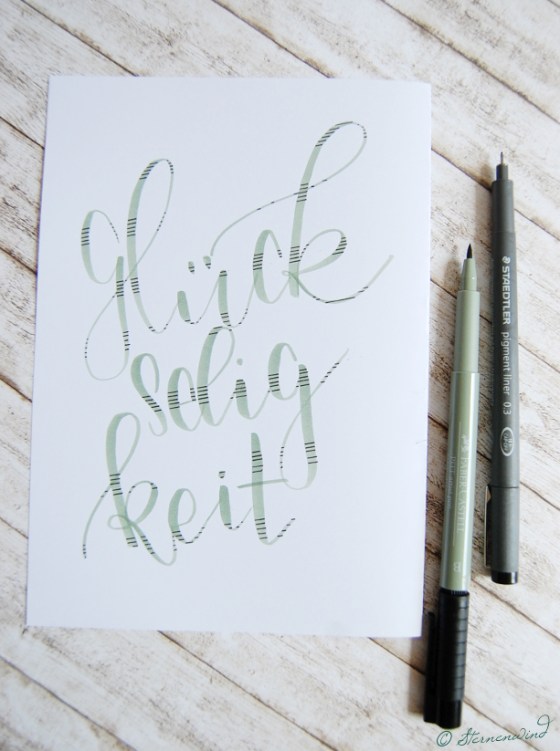 glück
selig
keit
STAEDTLER
pigment liner 0.3
FABER-CASTELL
B
© Sternenwind